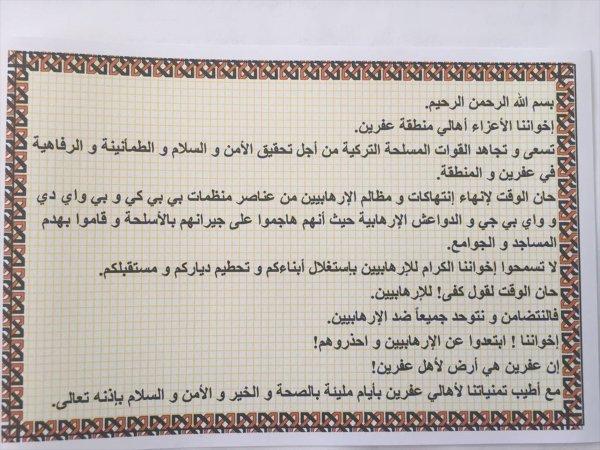 بسم الله الرحمن الرحيم.
إخواننا الأعزاء أهالي منطقة عفرين.
تسعى و تجاهد القوات المسلحة التركية من أجل تحقيق الأمن و السلام و الطمأنينة و الرفاهية
في عفرين و المنطقة.
حان الوقت لإنهاء إنتهاكات و مظالم الإرهابيين من عناصر منظمات بي بي كي و بي واي دي
و واي بي جي و الدواعش الإرهابية حيث أنهم هاجموا على جيرانهم بالأسلحة و قاموا بهدم
المساجد و الجوامع.
لا تسمحوا إخواننا الكرام للإرهابيين بإستغلال أبناءكم و تحطيم دياركم و مستقبلكم.
حان الوقت لقول كفى! للإرهابيين.
فالنتضامن و نتوحد جميعاً ضد الإرهابيين.
إخواننا ! ابتعدوا عن الإرهابيين و احذروهم!
إن عفرين هي أرض لأهل عفرين!
مع أطيب تمنياتنا لأهالي عفرين بأيام مليئة بالصحة و الخير و الأمن و السلام بإذنه تعالى.